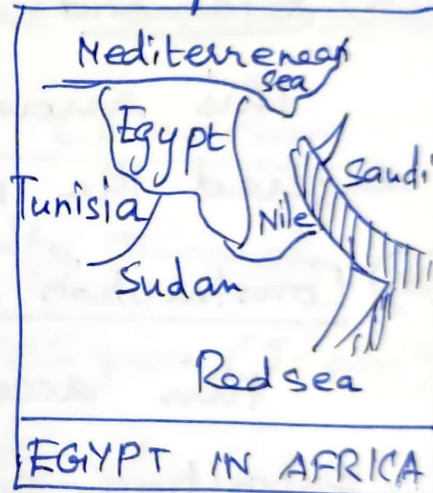 Mediterrenean
sea
Egypt
Saudi
Tunisia
Nile
Sudan
Red sea
EGYPT IN AFRICA